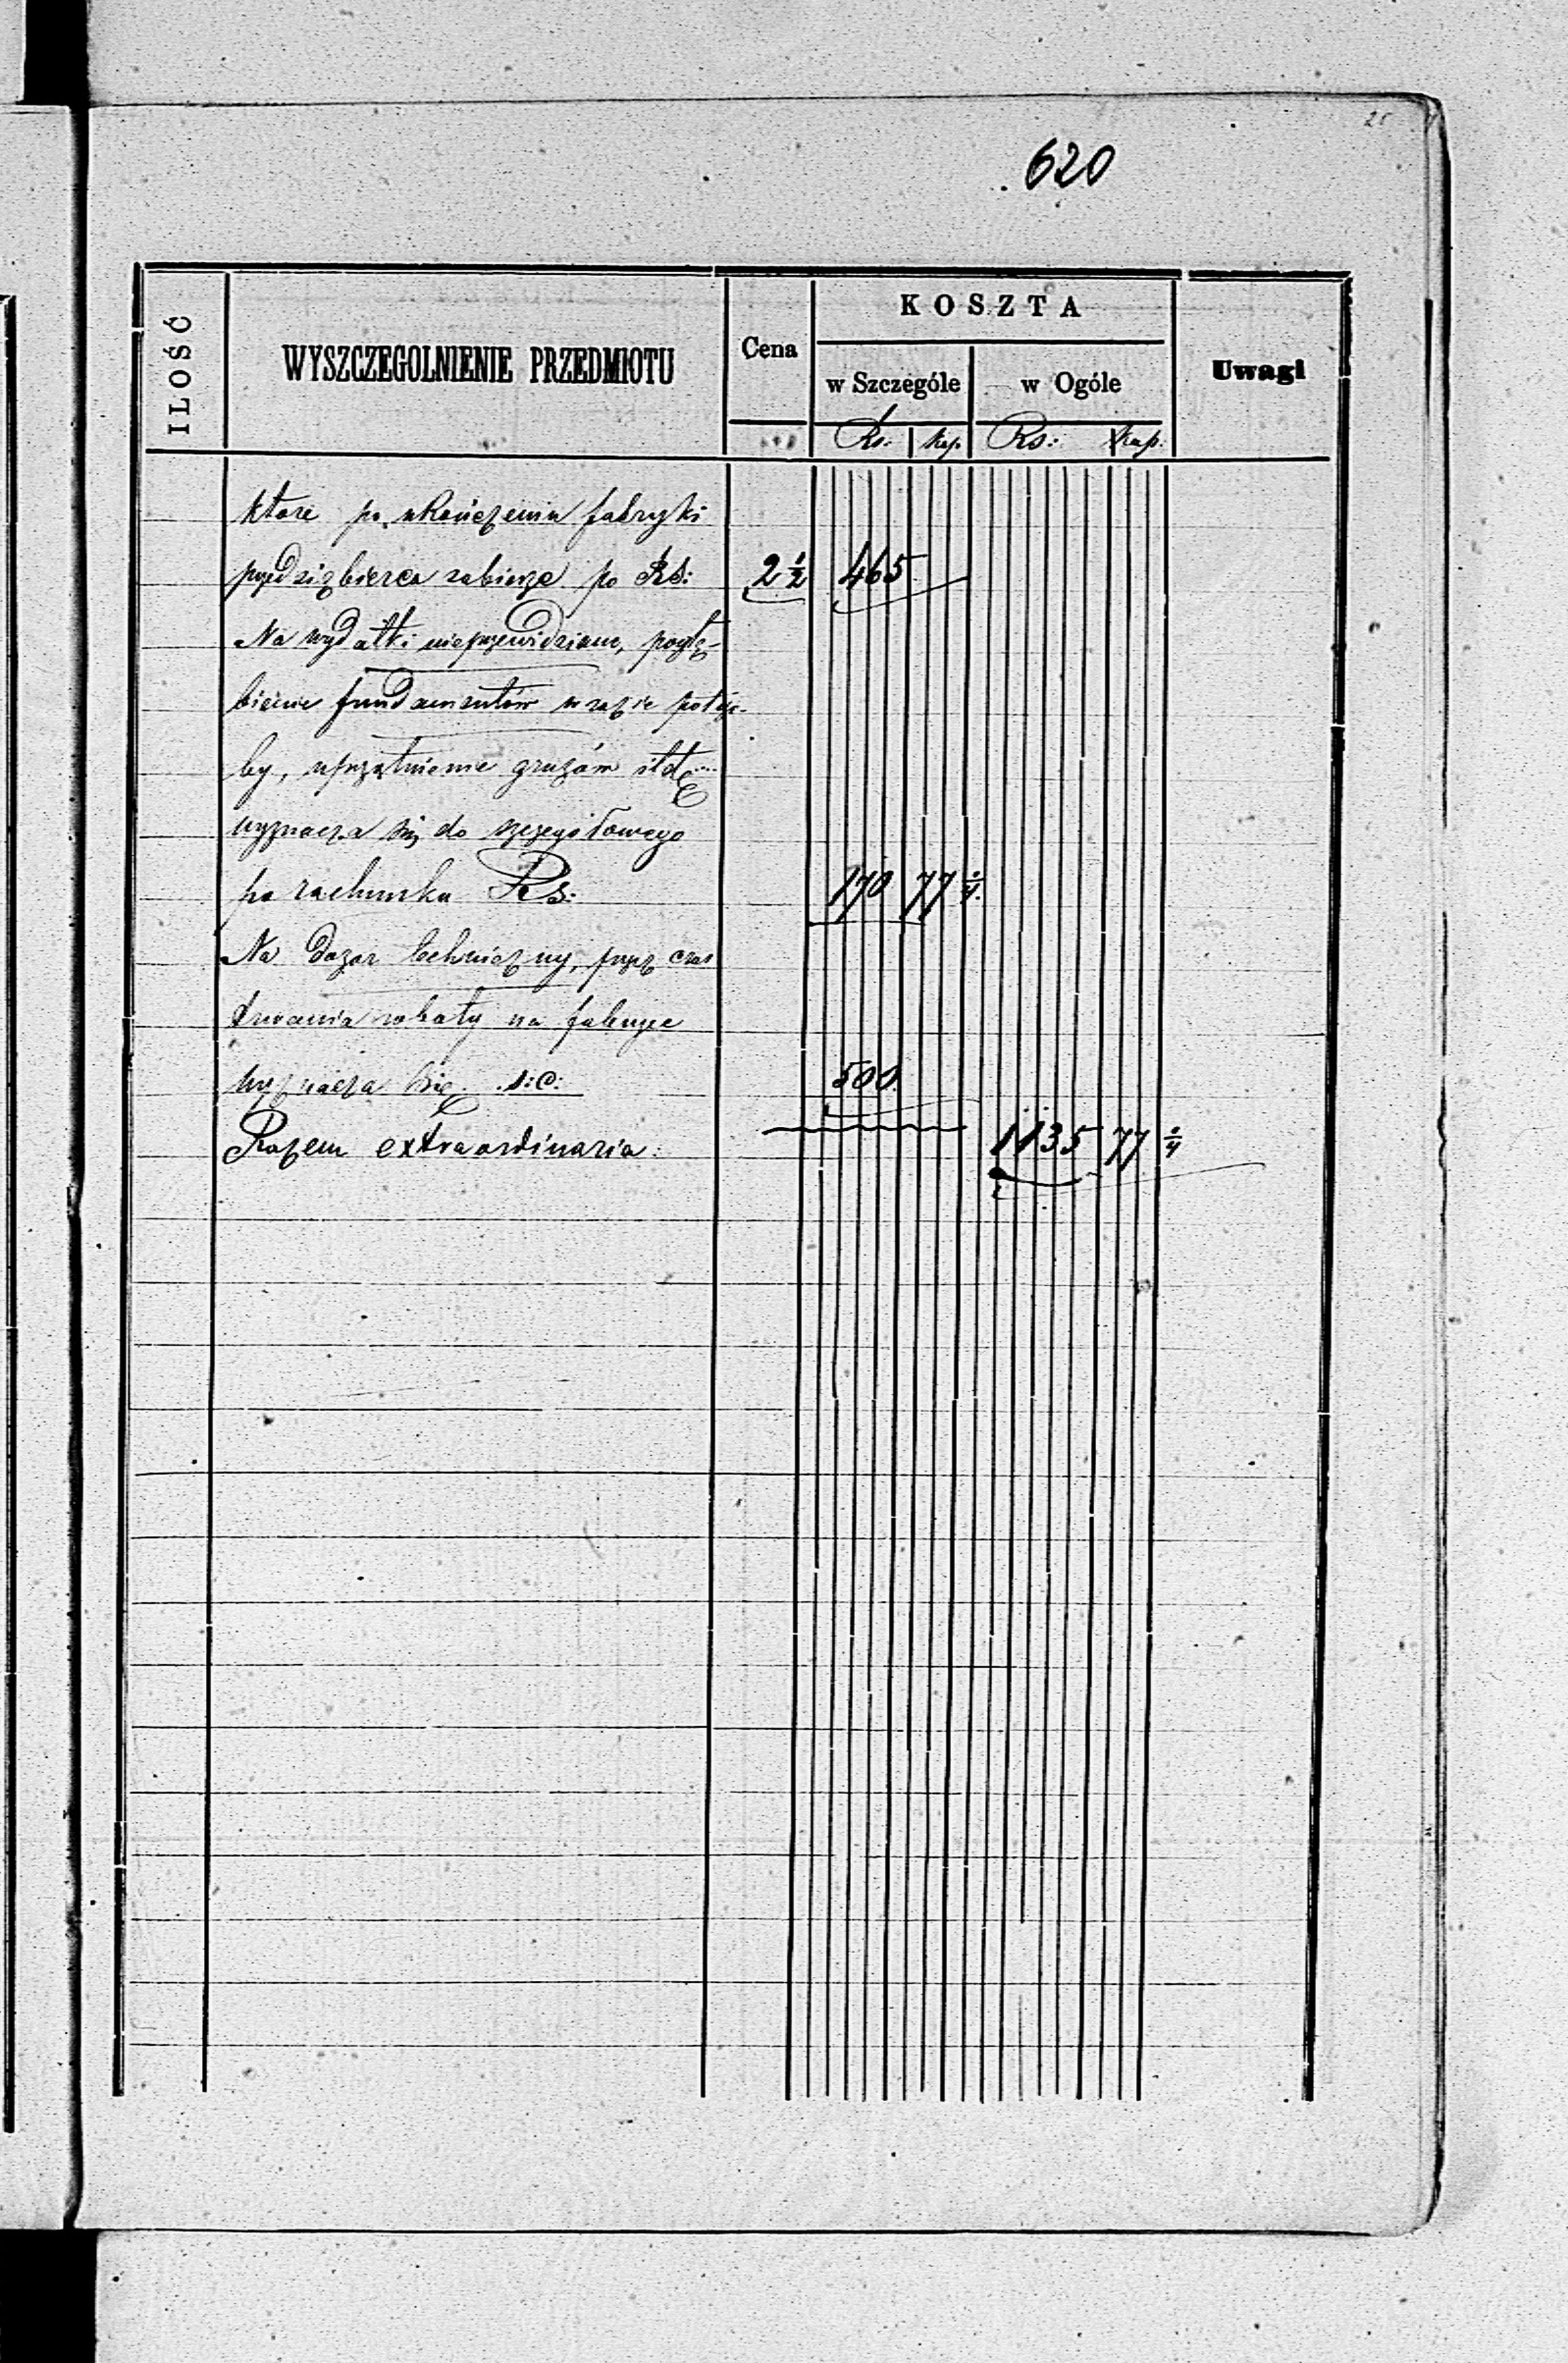 620
ILOŚĆ
WYSZCZEGOLNIENIE PRZEDMIOTU
Cena
KOSZTA
w Szczególe
w Ogóle
Uwagi
Rs: kop. Rs: kop.
które po ukończeniu fabryki
przedsiębierca zabierze po RS: 2 1/2 465
Na wydatki nieprzewidziane, pogłę-
bienie fundamentów w razie potrze-
by, uprzątnienie gruzów itd
wyznacza się do szczegółowego
po rachunku Rs: 170 77
Na dozór techniczny, przez czas
trwania roboty na fabryce
wyznacza się 500
Razem extraordinaria: 1135 77